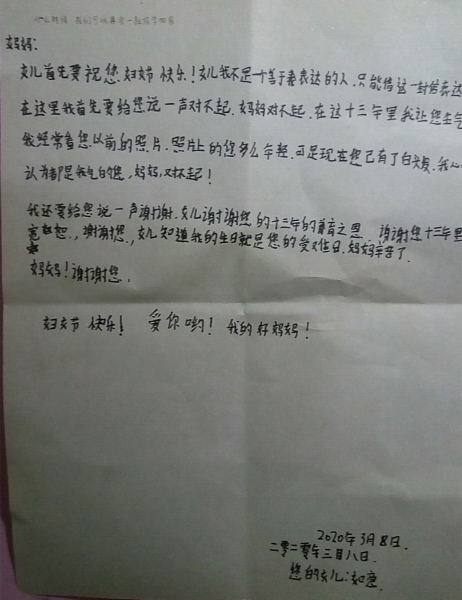 我们可以再来一起
妈妈:
女儿首先要祝您妇女节快乐!女儿我不是一个善于表达的人,只能借这一封信表达
在这里我首先要给您说一声对不起,妈妈对不起,在这十三年里我让您生气
我经常看您以前的照片,照片上的您多么年轻,可是现在您已有了白头发,我心
认为都是我气的您,妈妈,对不起!
我还要给您说一声谢谢,女儿谢谢您的十三年的养育之恩,谢谢您十三年里
宽恕,谢谢您,女儿知道我的生日就是您的受难日,妈妈辛苦了.
妈妈!谢谢您,
妇女节快乐! 爱你哟!我的好妈妈!
2020年3月8日.
二零二零年三月八日.
您的女儿:如